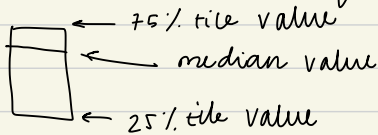 75% tile value
median value
25% tile value